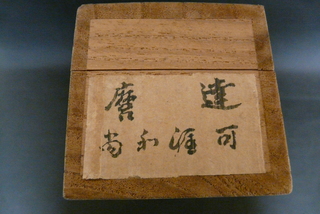 達磨
可涯和尚